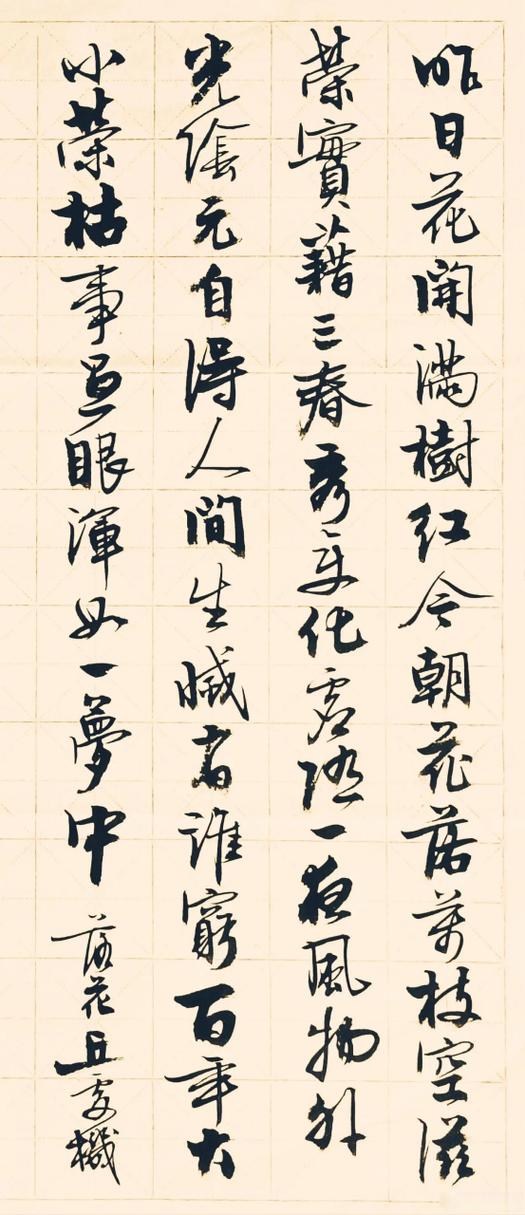 昨日花開滿樹紅今朝花落萬枝空滋
榮實藉三春秀變化虛隨一夜風物外
光陰元自得人間生滅有誰窮百年大
小榮枯事過眼渾如一夢中 落花丘處機